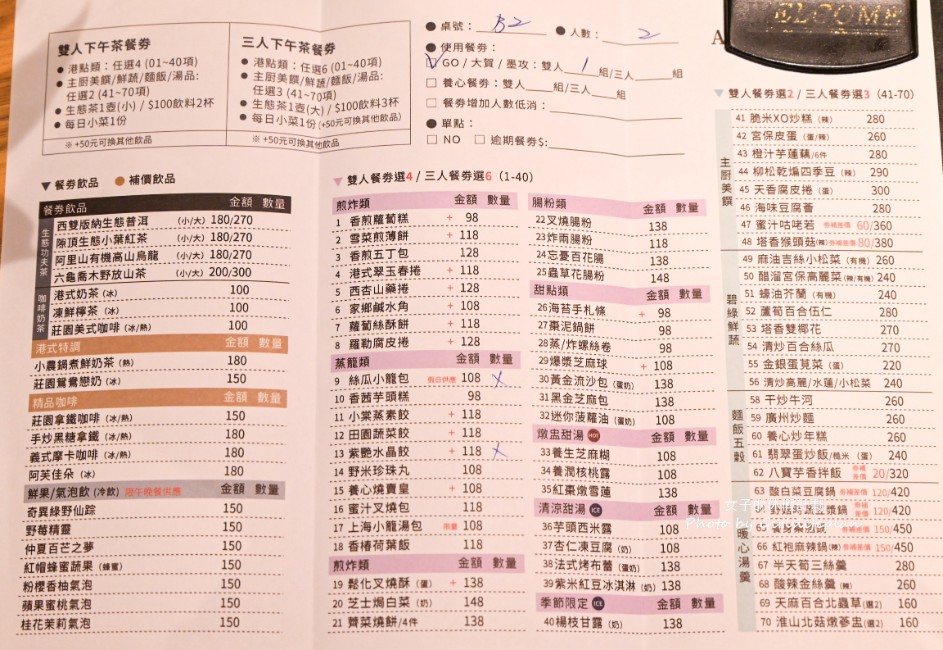 WELCOME
雙人下午茶餐券
● 港點類：任選4 (01~40項)
● 主廚美饌/鮮蔬/麵飯/湯品:
任選2 (41~70項)
● 生態茶1壺(小) / $100飲料2杯
● 每日小菜1份
※ +50元可換其他飲品
三人下午茶餐券
● 港點類：任選6 (01~40項)
● 主廚美饌/鮮蔬/麵飯/湯品:
任選3 (41~70項)
● 生態茶1壺(大) / $100飲料3杯
● 每日小菜1份 (+50元可換其他飲品)
※ +50元可換其他飲品
● 桌號： B2 ● 人數： 2
● 使用餐券：
☑ GO / 大賀 / 墨攻：雙人 1 組/三人 組
□ 養心餐券：雙人 組/三人 組
□ 餐券增加人數低消：
● 單點：
□ NO □ 逾期餐券$:
▼ 餐券飲品 ● 補價飲品
餐券飲品 金額 數量
生態功夫茶
西雙版納生態普洱 (小/大) 180/270
隙頂生態小葉紅茶 (小/大) 180/270
阿里山有機高山烏龍 (小/大) 180/270
六龜喬木野放山茶 (小/大) 200/300
咖啡奶茶
港式奶茶 (冰) 100
凍鮮檸茶 (冰) 100
莊園美式咖啡 (冰/熱) 100
港式特調 金額 數量
小農鍋煮鮮奶茶 (熱) 180
莊園鴛鴦戀奶 (冰) 150
精品咖啡 金額 數量
莊園拿鐵咖啡 (冰/熱) 150
手炒黑糖拿鐵 (冰/熱) 180
義式摩卡咖啡 (冰/熱) 180
阿芙佳朵 (冰) 180
鮮果/氣泡飲 (冷飲) 限午晚餐供應 金額 數量
奇異綠野仙踪 150
野莓精靈 150
仲夏百芒之夢 150
紅帽蜂蜜蔬果 (蜂蜜) 150
粉櫻香柚氣泡 150
蘋果蜜桃氣泡 150
桂花茉莉氣泡 150
▼ 雙人餐券選4 / 三人餐券選6（1-40）
煎炸類 金額 數量
1 香煎蘿蔔糕 + 98
2 雪菜煎薄餅 + 118
3 香煎五丁包 128
4 港式翠玉春捲 + 118
5 西杏山藥捲 + 128
6 家鄉鹹水角 + 108
7 蘿蔔絲酥餅 + 118
8 羅勒腐皮捲 + 128
蒸籠類 金額 數量
9 絲瓜小籠包 假日供應 108 X
10 香茜芋頭糕 98
11 小棠蒸素餃 + 118
12 田園蔬菜餃 + 118
13 紫艷水晶餃 + 118 X
14 野米珍珠丸 108
15 養心燒賣皇 + 108
16 蜜汁叉燒包 118
17 上海小龍湯包 限量 108
18 香椿荷葉飯 118
煎炸類 金額 數量
19 鬆化叉燒酥 (蛋) + 138
20 芝士焗白菜 (奶) 148
21 薺菜燒餅/4件 138
腸粉類 金額 數量
22叉燒腸粉 138
23炸兩腸粉 118
24忘憂百花腸 138
25蟲草花腸粉 148
甜點類 金額 數量
26海苔手札條 + 98
27棗泥鍋餅 98
28蒸/炸螺絲卷 98
29爆漿芝麻球 + 108
30黃金流沙包 (蛋奶) 138
31黑金芝麻包 138
32迷你菠蘿油 (蛋奶) 108
燉盅甜湯 HOT 金額 數量
33養生芝麻糊 108
34養潤核桃露 108
35紅棗燉雪蓮 138
清涼甜湯 ICE 金額 數量
36芋頭西米露 108
37杏仁凍豆腐 (奶) 108
38法式烤布蕾 (蛋奶) 138
39紫米紅豆冰淇淋 (奶) 138
季節限定 ICE 金額 數量
40楊枝甘露 (奶) 138
▼ 雙人餐券選2 / 三人餐券選3（41-70）
主廚美饌
41 脆米XO炒糕 (辣) 280
42 宮保皮蛋 (蛋/辣) 260
43 橙汁芋蓮藕/6件 280
44 柳松乾煸四季豆 (辣) 290
45 天香腐皮捲 (蛋) 300
46 海味豆腐薈 280
47 蜜汁咕咾若 券補差價 60/360
48 塔香猴頭菇(辣) 券補差價 80/380
碧綠鮮蔬
49 麻油吉絲小松菜 (有機) 260
50 醋溜宮保高麗菜 (有機/辣) 240
51 蠔油芥蘭 (有機) 240
52 蘆筍百合伍仁 280
53 塔香雙椰花 270
54 清炒百合絲瓜 270
55 金銀蛋莧菜 (蛋) 220
56 清炒高麗/水蓮/小松菜 240
麵飯五穀
58 干炒牛河 260
59 廣州炒麵 260
60 養心炒年糕 260
61 翡翠蛋炒飯/糙米 (蛋) 240
62 八寶芋香拌飯 券補差價 20/320
暖心湯羹
63 酸白菜豆腐鍋 券補差價 120/420
120/420
券補差價 150/450
66 紅袍麻辣鍋(辣) 券補差價 150/450
67 半天荀三絲羹 280
68 酸辣金絲羹(辣) 260
69 天麻百合北蟲草(選2) 160
70 淮山北菇燉蔘盅(選2) 160